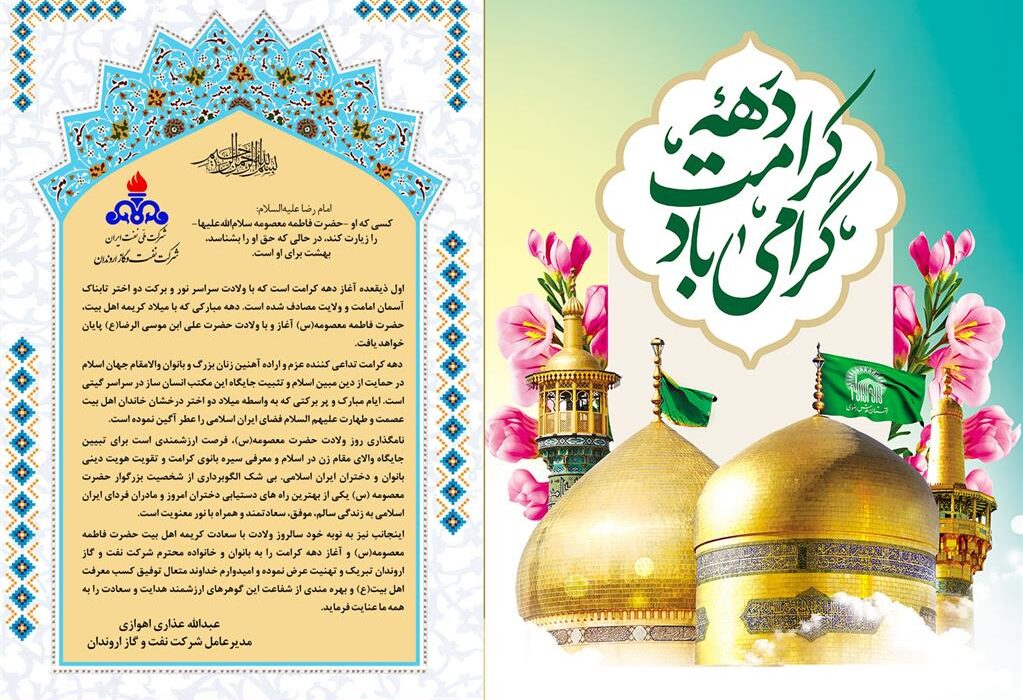 بسم الله الرحمن الرحیم
شرکت ملی نفت ایران
شرکت نفت و گاز اروندان
امام رضا علیه‌السلام:
کسی که او –حضرت فاطمه معصومه سلام‌الله‌علیها–
را زیارت کند، در حالی که حق او را بشناسد،
بهشت برای او است.
اول ذیقعده آغاز دهه کرامت است که با ولادت سراسر نور و برکت دو اختر تابناک
آسمان امامت و ولایت مصادف شده است. دهه مبارکی که با میلاد کریمه اهل بیت،
حضرت فاطمه معصومه(س) آغاز و با ولادت حضرت علی ابن موسی الرضا(ع) پایان
خواهد یافت.
دهه کرامت تداعی کننده عزم و اراده آهنین زنان بزرگ و بانوان والامقام جهان اسلام
در حمایت از دین مبین اسلام و تثبیت جایگاه این مکتب انسان ساز در سراسر گیتی
است. ایام مبارک و پر برکتی که به واسطه میلاد دو اختر درخشان خاندان اهل بیت
عصمت و طهارت علیهم السلام فضای ایران اسلامی را عطر آگین نموده است.
نامگذاری روز ولادت حضرت معصومه(س)، فرصت ارزشمندی است برای تبیین
جایگاه والای مقام زن در اسلام و معرفی سیره بانوی کرامت و تقویت هویت دینی
بانوان و دختران ایران اسلامی. بی شک الگوبرداری از شخصیت بزرگوار حضرت
معصومه (س) یکی از بهترین راه های دستیابی دختران امروز و مادران فردای ایران
اسلامی به زندگی سالم، موفق، سعادتمند و همراه با نور معنویت است.
اینجانب نیز به نوبه خود سالروز ولادت با سعادت کریمه اهل بیت حضرت فاطمه
معصومه(س) و آغاز دهه کرامت را به بانوان و خانواده محترم شرکت نفت و گاز
اروندان تبریک و تهنیت عرض نموده و امیدوارم خداوند متعال توفیق کسب معرفت
اهل بیت(ع) و بهره مندی از شفاعت این گوهرهای ارزشمند هدایت و سعادت را به
همه ما عنایت فرماید.
عبدالله عذاری اهوازی
مدیرعامل شرکت نفت و گاز اروندان
دهه
کرامت
گرامی باد